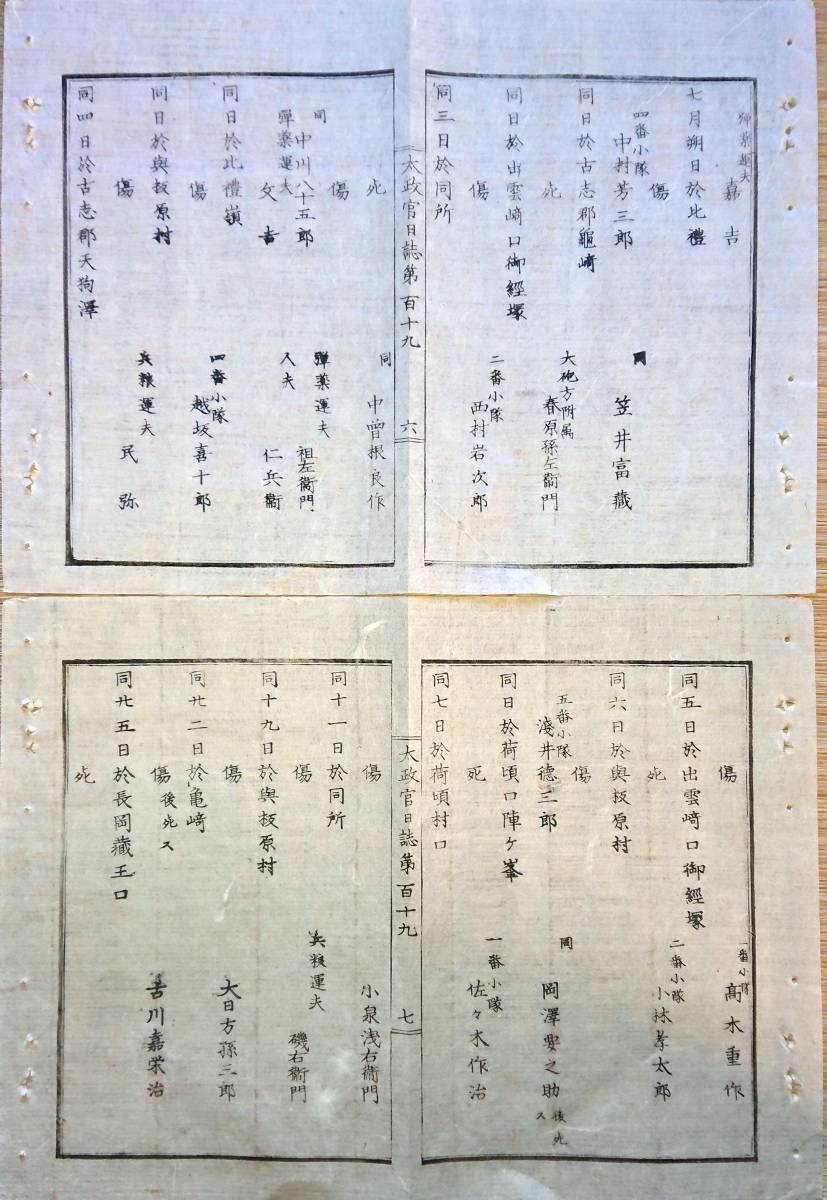 彈藥運夫
嘉吉
七月朔日於比禮
傷
四番小隊
中村芳三郎
同
笠井富藏
同日於古志郡龜﨑
死
大砲方附属
春原孫左衞門
同日於出雲﨑口御經塚
傷
二番小隊
西村岩次郎
同三日於同所
太政官日誌第百十九
六
死
同
中曾根良作
傷
同
中川八十五郎
彈藥運夫
祖左衞門
彈藥運夫
文吉
人夫
仁兵衞
同日於比禮嶺
傷
四番小隊
越坂喜十郎
同日於與板原村
傷
兵粮運夫
民弥
同四日於古志郡天狗澤
傷
一番小隊
髙木重作
同五日於出雲﨑口御經塚
死
二番小隊
小林孝太郎
同六日於與板原村
傷
五番小隊
淺井德三郎
同
岡澤要之助
後死ス
同日於荷頃口陣ケ峯
死
一番小隊
佐々木作治
同七日於荷頃村口
太政官日誌第百十九
七
傷
小泉浅右衞門
同十一日於同所
傷
兵粮運夫
磯右衞門
同十九日於與板原村
傷
大日方孫三郎
同廿二日於亀﨑
傷
後死ス
吉川嘉栄治
同廿五日於長岡藏王口
死